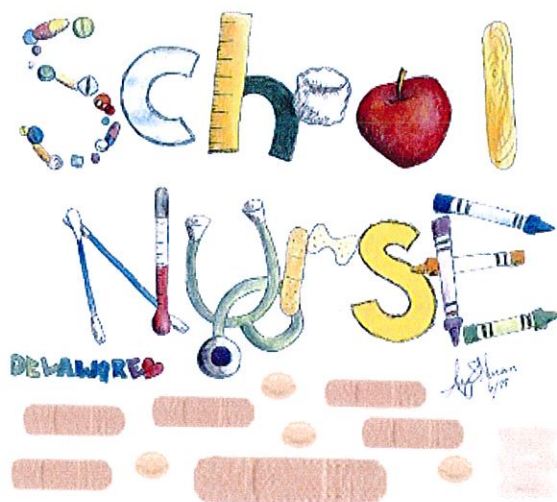 School
Nurse
DELAWARE
6/05